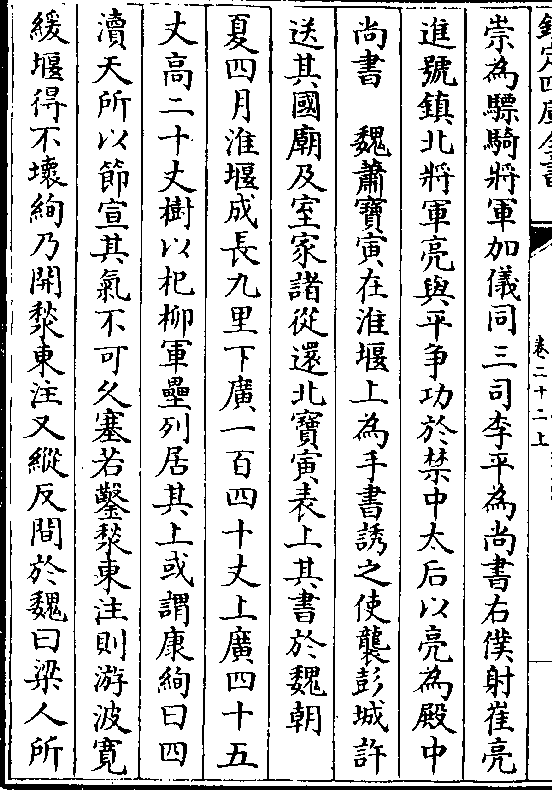 欽定四庫全書
卷二十二上
崇為驃騎將軍加儀同三司李平為尚書右僕射崔亮
進號鎮北將軍亮與平爭功於禁中太后以亮為殿中
尚書　魏蕭寶寅在淮堰上為手書誘之使襲彭城許
送其國廟及室家諸從還北寶寅表上其書於魏朝
夏四月淮堰成長九里下廣一百四十丈上廣四十五
丈高二十丈樹以杞柳軍壘列居其上或謂康絢曰四
瀆天所以節宣其氣不可久塞若鑿漐東注則游波寛
緩堰得不壞絢乃開漐東注又縱反間於魏曰梁人所